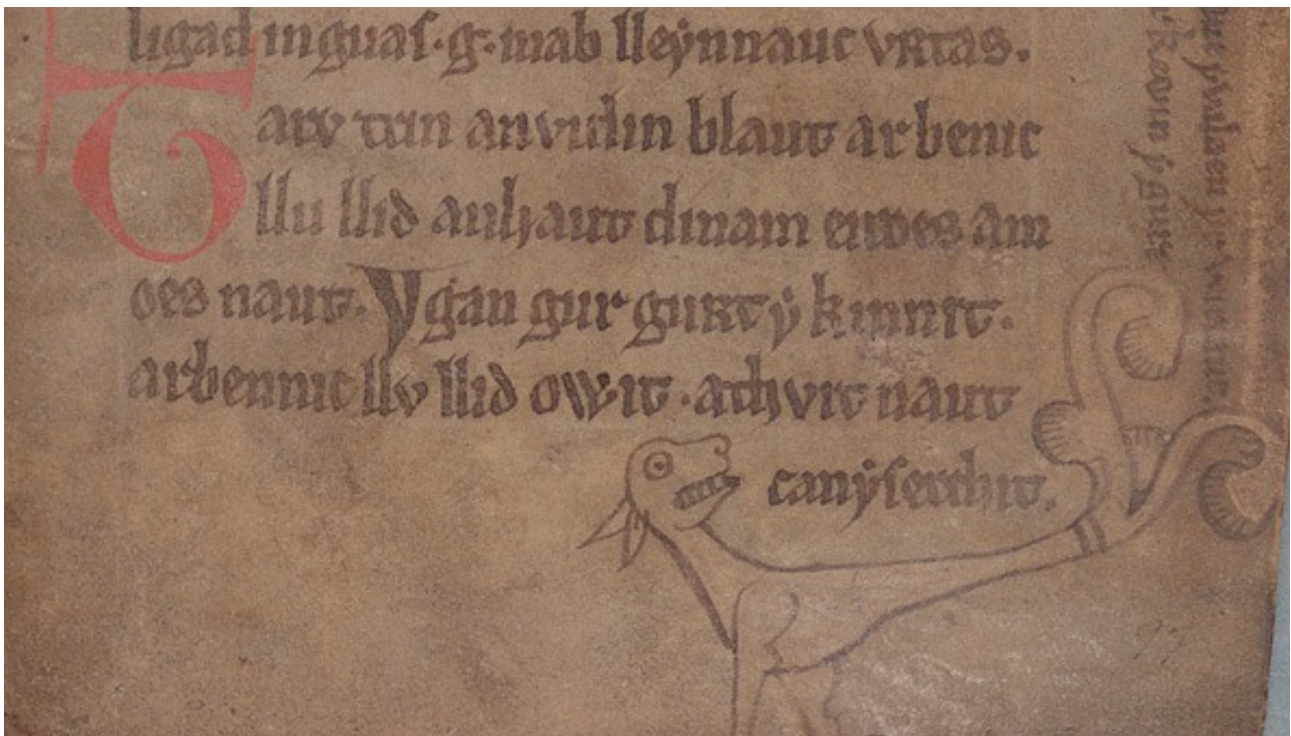 ligad in guas. g. mab lleynnauc vrtas.
Tarv trin anvidin blaut arbenic
llu llid anhaut dinam eiroes am
oes naut. Y gan gur gurt y kinnit.
arbennic llv llid owit. athvit naut
canyserchit.